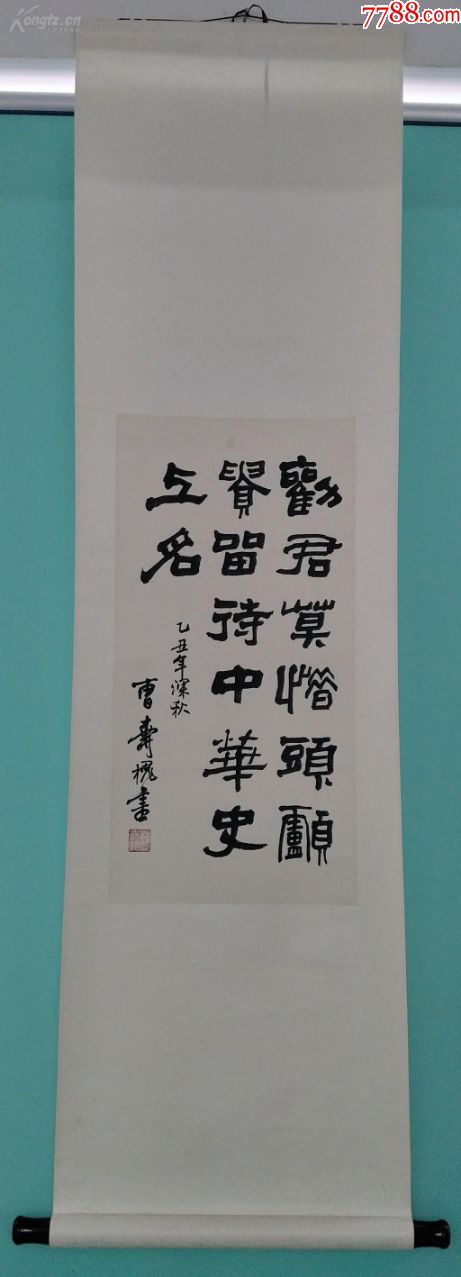 Kongfz.cn
7788.com
勸君莫惜頭顱
貴留待中華史
上名
乙丑年深秋
曹壽槐書